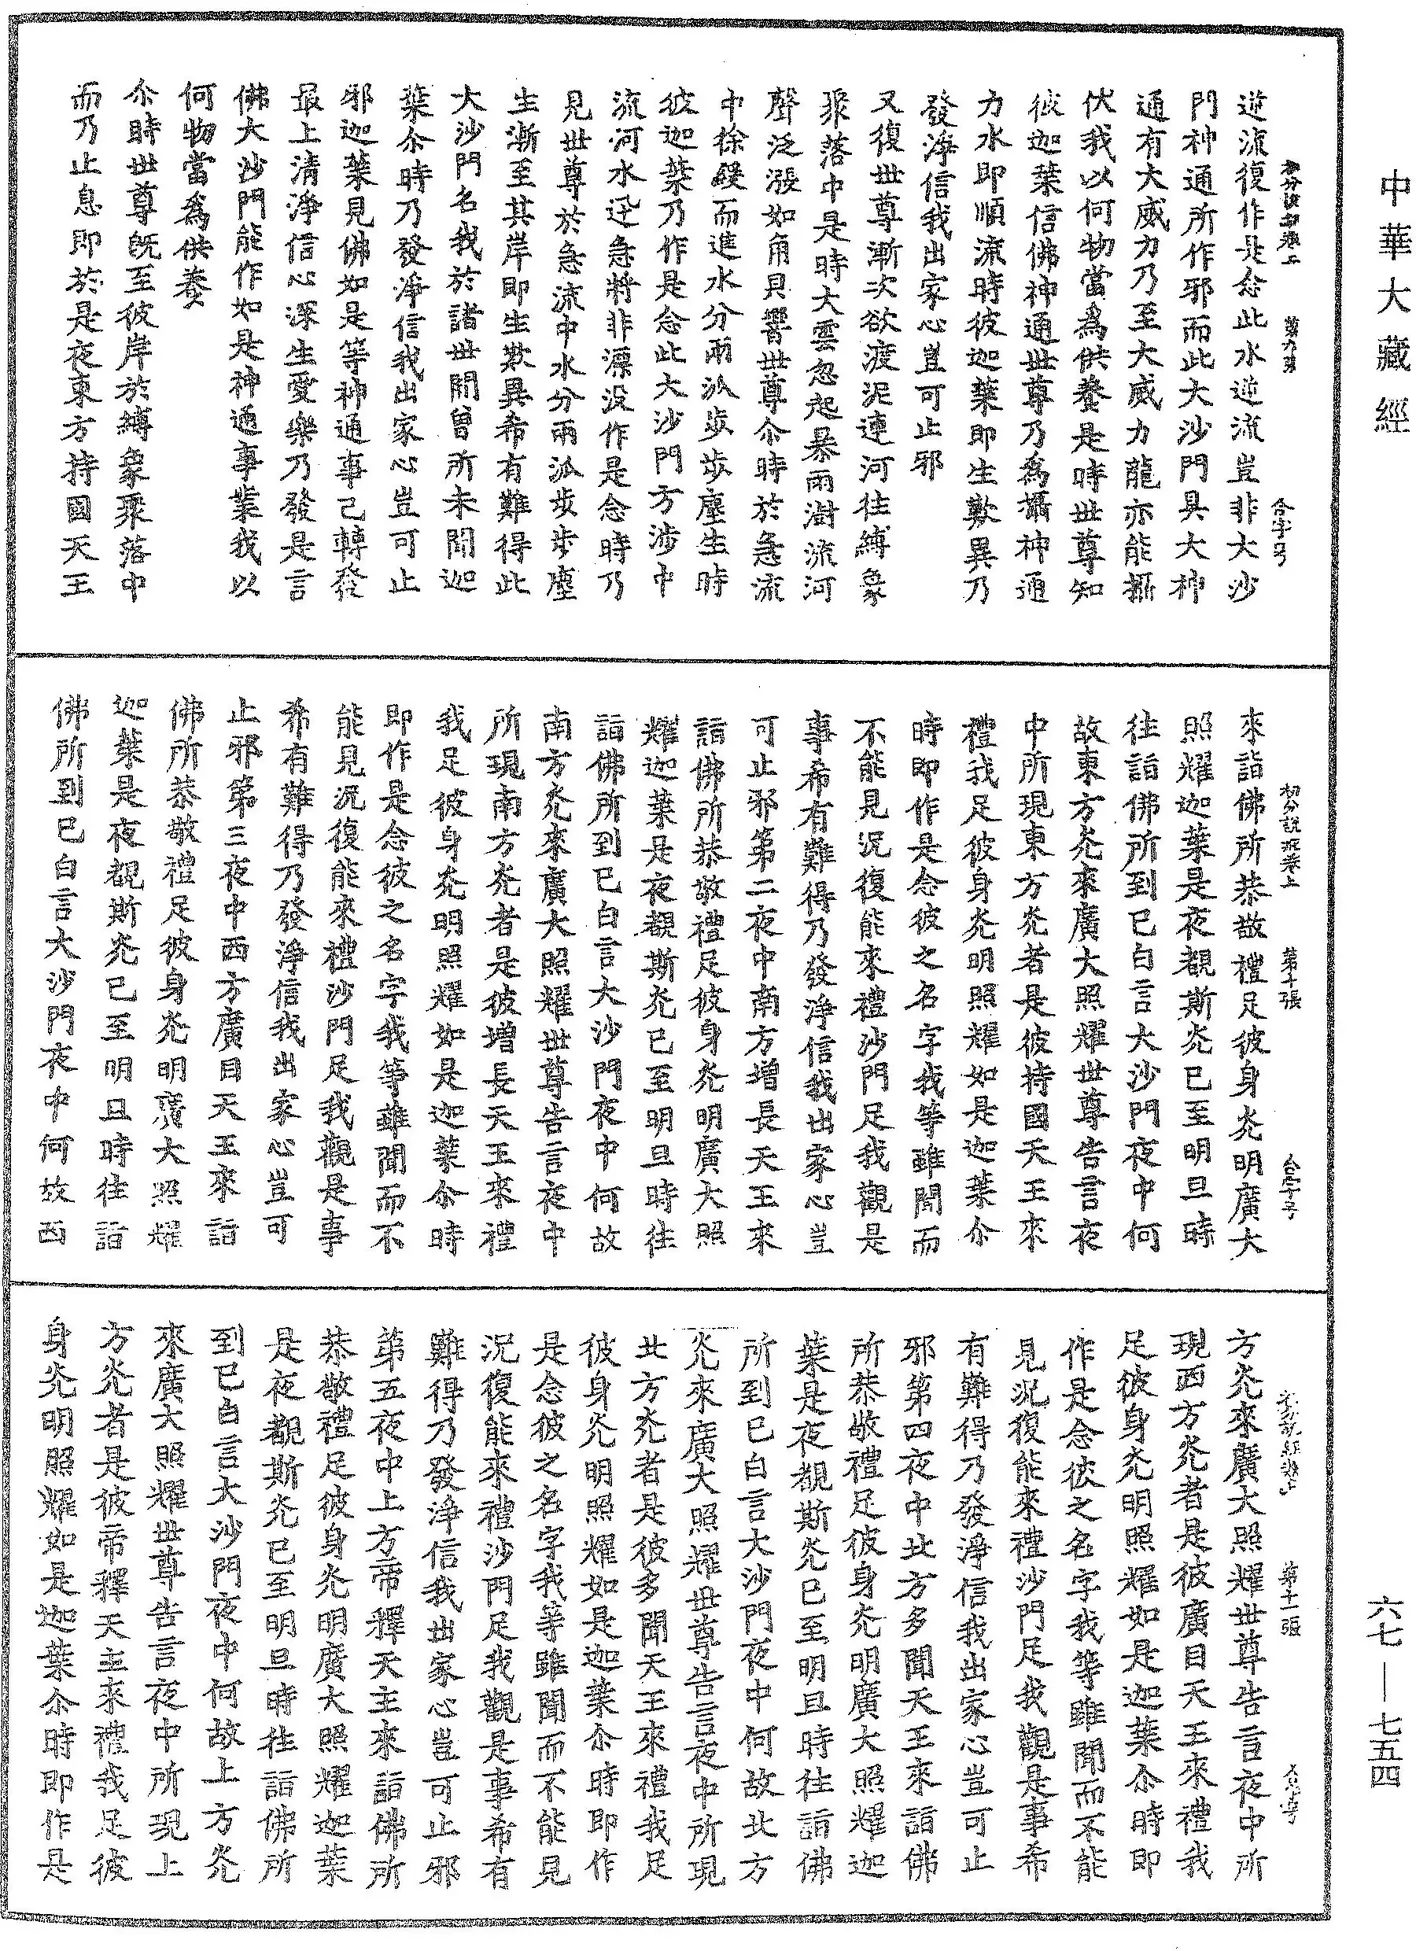 中華大藏經
逆流復作是念此水逆流豈非大沙
門神通所作邪而此大沙門具大神
通有大威力乃至大威力龍亦能攝
伏我以何物當爲供養是時世尊知
彼迦葉信佛神通世尊乃爲攝神通
力水即順流時彼迦葉即生歎異乃
發淨信我出家心豈可止邪
又復世尊漸次欲渡泥連河往縛象
聚落中是時大雲忽起暴雨澍流河
聲泛漲如角貝響世尊尒時於急流
中徐緩而進水分兩泒步步塵生時
彼迦葉乃作是念此大沙門方涉中
流河水迅急將非漂没作是念時乃
見世尊於急流中水分兩泒步步塵
生漸至其岸即生歎異希有難得此
大沙門名我於諸世間曾所未聞迦
葉尒時乃發淨信我出家心豈可止
邪迦葉見佛如是等神通事已轉發
最上清淨信心深生愛樂乃發是言
佛大沙門能作如是神通事業我以
何物當爲供養
尒時世尊旣至彼岸於縛象聚落中
而乃止息即於是夜東方持國天王
初分說經卷上　第十張　合字号
來詣佛所恭敬禮足彼身光明廣大
照耀迦葉是夜覩斯光已至明旦時
往詣佛所到已白言大沙門夜中何
故東方光來廣大照耀世尊告言夜
中所現東方光者是彼持國天王來
禮我足彼身光明照耀如是迦葉尒
時即作是念彼之名字我等雖聞而
不能見況復能來禮沙門足我觀是
事希有難得乃發淨信我出家心豈
可止邪第二夜中南方增長天王來
詣佛所恭敬禮足彼身光明廣大照
耀迦葉是夜覩斯光已至明旦時往
詣佛所到已白言大沙門夜中何故
南方光來廣大照耀世尊告言夜中
所現南方光者是彼增長天王來禮
我足彼身光明照耀如是迦葉尒時
即作是念彼之名字我等雖聞而不
能見況復能來禮沙門足我觀是事
希有難得乃發淨信我出家心豈可
止邪第三夜中西方廣目天王來詣
佛所恭敬禮足彼身光明廣大照耀
迦葉是夜覩斯光已至明旦時往詣
佛所到已白言大沙門夜中何故西
第十一張
方光來廣大照耀世尊告言夜中所
現西方光者是彼廣目天王來禮我
足彼身光明照耀如是迦葉尒時即
作是念彼之名字我等雖聞而不能
見況復能來禮沙門足我觀是事希
有難得乃發淨信我出家心豈可止
邪第四夜中北方多聞天王來詣佛
所恭敬禮足彼身光明廣大照耀迦
葉是夜覩斯光已至明旦時往詣佛
所到已白言大沙門夜中何故北方
光來廣大照耀世尊告言夜中所現
北方光者是彼多聞天王來禮我足
彼身光明照耀如是迦葉尒時即作
是念彼之名字我等雖聞而不能見
況復能來禮沙門足我觀是事希有
難得乃發淨信我出家心豈可止邪
第五夜中上方帝釋天主來詣佛所
恭敬禮足彼身光明廣大照耀迦葉
是夜覩斯光已至明旦時往詣佛所
到已白言大沙門夜中何故上方光
來廣大照耀世尊告言夜中所現上
方光者是彼帝釋天主來禮我足彼
身光明照耀如是迦葉尒時即作是
六七—七五四